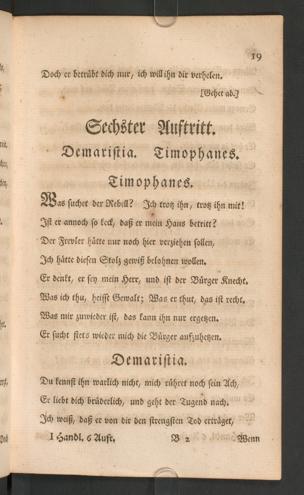 19
Doch er betrübt dich nur, ich will ihn dir verhelen.
[Gehet ab.]
Sechster Auftritt.
Demaristia. Timophanes.
Timophanes.
Was suchet der Rebell? Ich trotz ihn, trotz ihn mit!
Ist er annoch so keck, daß er mein Haus betritt?
Der Frevler hätte nur noch hier verziehen sollen,
Ich hätte diesen Stolz gewiß belohnen wollen.
Er denkt, er sey mein Herr, und ist der Bürger Knecht.
Was ich thu, heisst Gewalt; Was er thut, das ist recht.
Was mir zuwieder ist, das kann ihn nur ergetzen.
Er sucht stets wieder mich die Bürger aufzuhetzen.
Demaristia.
Du kennst ihn warlich nicht, mich rühret noch sein Ach,
Er liebt dich brüderlich, und geht der Tugend nach.
Ich weiß, daß er von dir den strengsten Tod erträget,
I Handl. 6 Auft. B 2 Wenn